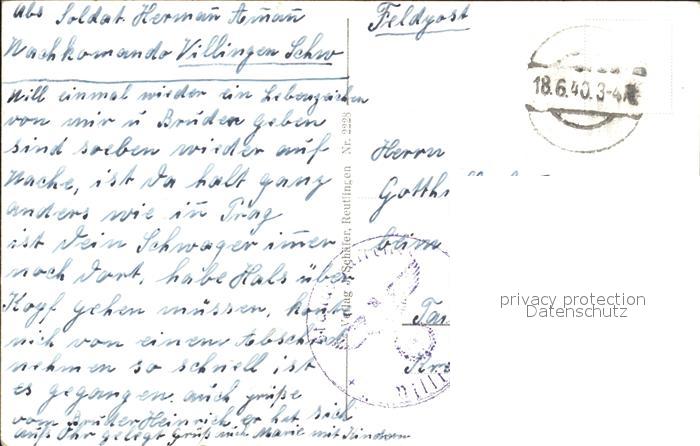 Abs Soldat Herman Aman
Wachkomando Villingen Schw
Will einmal wieder ein Lebenzeichen
von mir u Bruder geben
sind soeben wieder auf
Wache, ist da halt ganz
anders wie in Prag
ist dein Schwager imer
noch dort, habe Hals über
Kopf gehen müssen, kont
mich von einem Abschied
nehmen so schnell ist
es gegangen. auch grüße
vom Bruder Heinrich er hat sich
aufs Ohr gelegt Gruß mir Marie mit Kindern
Verlag J. Schäfer, Reutlingen Nr. 2228
Feldpost
18.6.40.3-4
Herrn
Gotth
privacy protection
Datenschutz